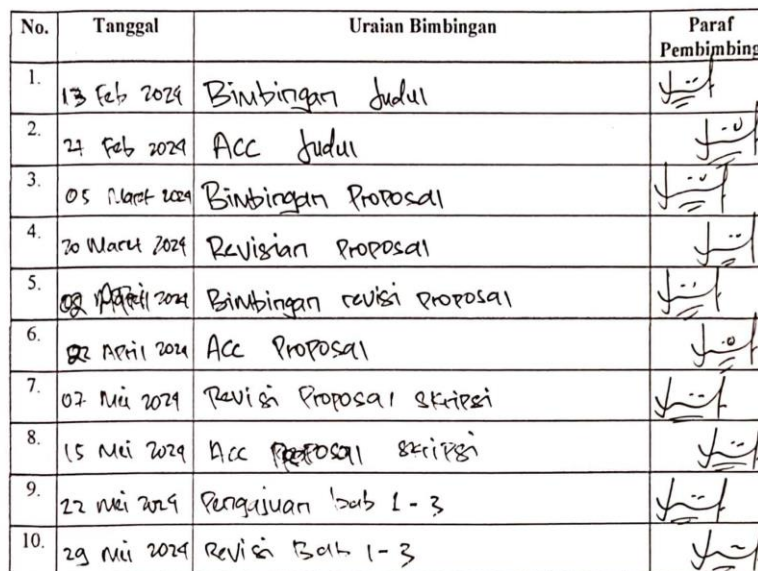 No. Tanggal Uraian Bimbingan Paraf Pembimbing
1. 13 Feb 2024 Bimbingan Judul
2. 27 Feb 2024 Acc Judul
3. 05 Maret 2024 Bimbingan Proposal
4. 20 Maret 2024 Revisian Proposal
5. 02 April 2024 Bimbingan revisi proposal
6. 22 April 2024 Acc Proposal
7. 07 Mei 2024 Revisi Proposal Skripsi
8. 15 Mei 2024 Acc Proposal Skripsi
9. 22 Mei 2024 Pengajuan bab 1-3
10. 29 Mei 2024 Revisi Bab 1-3